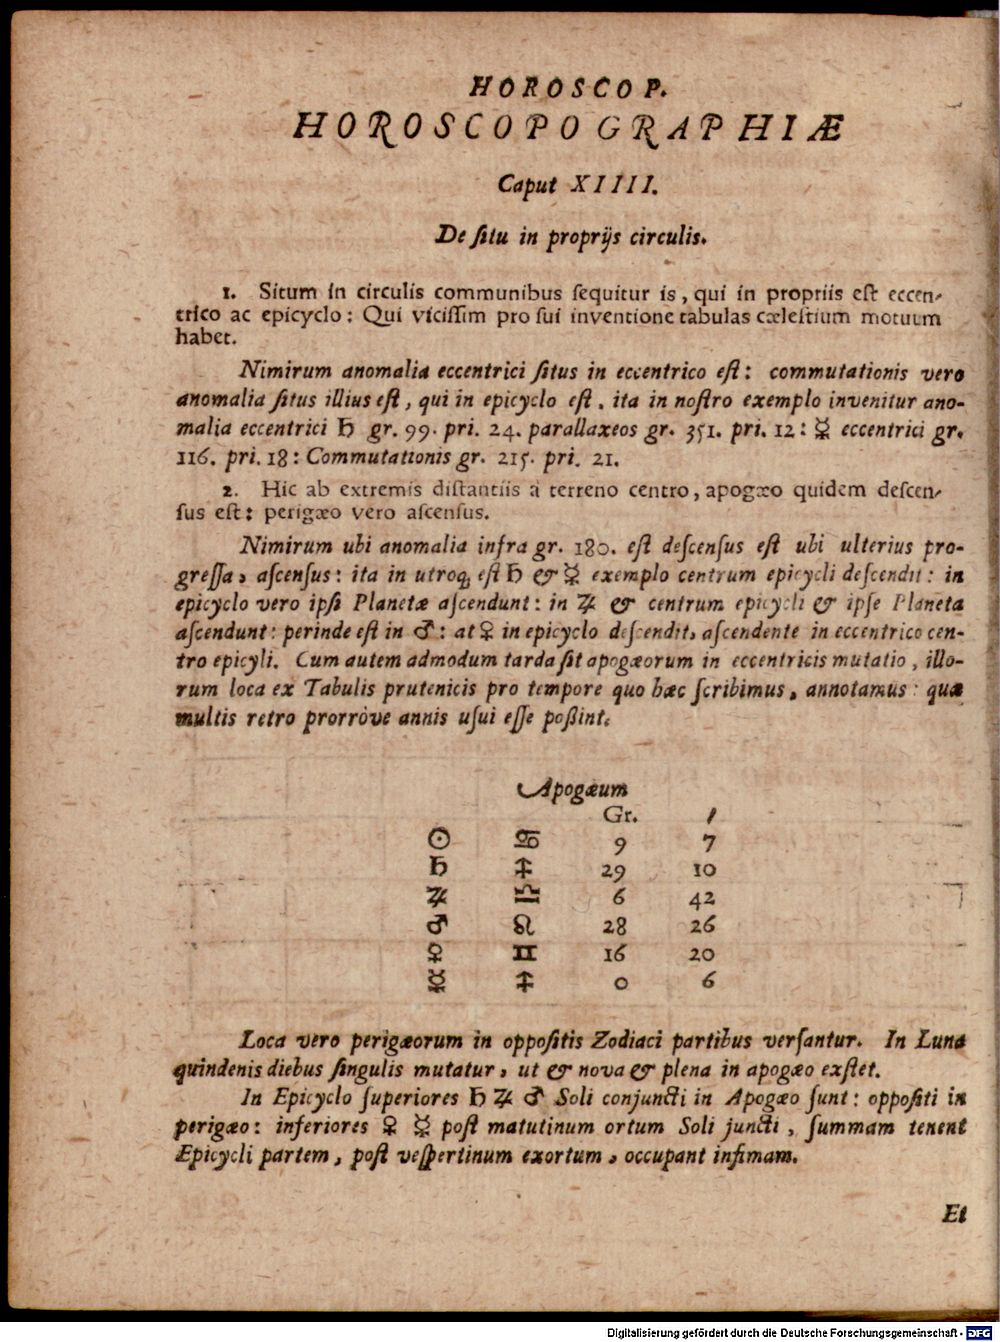 HOROSCOP.
HOROSCOPOGRAPHIÆ
Caput XIIII.
De ſitu in proprijs circulis.
1. Situm in circulis communibus ſequitur is, qui in propriis eſt eccen-
trico ac epicyclo: Qui viciſſim pro ſui inventione tabulas cæleſtium motuum
habet.
Nimirum anomalia eccentrici ſitus in eccentrico eſt: commutationis vero
anomalia ſitus illius eſt, qui in epicyclo eſt. ita in noſtro exemplo invenitur ano-
malia eccentrici ♄ gr. 99. pri. 24. parallaxeos gr. 351. pri. 12: ☿ eccentrici gr.
116. pri. 18: Commutationis gr. 215. pri. 21.
2. Hic ab extremis diſtantiis à terreno centro, apogæo quidem deſcen-
ſus eſt: perigæo vero aſcenſus.
Nimirum ubi anomalia infra gr. 180. eſt deſcenſus eſt ubi ulterius pro-
greſſa, aſcenſus: ita in utroq; eſt ♄ & ☿ exemplo centrum epicycli deſcendit: in
epicyclo vero ipſi Planetæ aſcendunt: in ♃ & centrum epicycli & ipſe Planeta
aſcendunt: perinde eſt in ♂: at ♀ in epicyclo deſcendit, aſcendente in eccentrico cen-
tro epicyli. Cum autem admodum tarda ſit apogæorum in eccentricis mutatio, illo-
rum loca ex Tabulis prutenicis pro tempore quo hæc ſcribimus, annotamus: quæ
multis retro prorròve annis uſui eſſe poßint.
Apogæum
Gr. ′
☉ ♋ 9 7
♄ ♐ 29 10
♃ ♎ 6 42
♂ ♌ 28 26
♀ ♊ 16 20
☿ ♐ 0 6
Loca vero perigæorum in oppoſitis Zodiaci partibus verſantur. In Luna
quindenis diebus ſingulis mutatur, ut & nova & plena in apogæo exſtet.
In Epicyclo ſuperiores ♄ ♃ ♂ Soli conjuncti in Apogæo ſunt: oppoſiti in
perigæo: inferiores ♀ ☿ poſt matutinum ortum Soli juncti, ſummam tenent
Epicycli partem, poſt veſpertinum exortum, occupant infimam.
Et
Digitalisierung gefördert durch die Deutsche Forschungsgemeinschaft - DFG